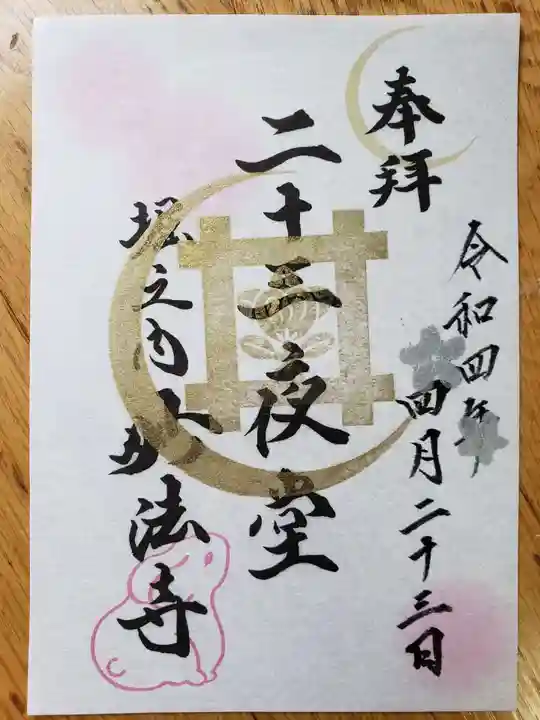 奉拝
令和四年
四月二十三日
二十三夜堂
堀之内妙法寺